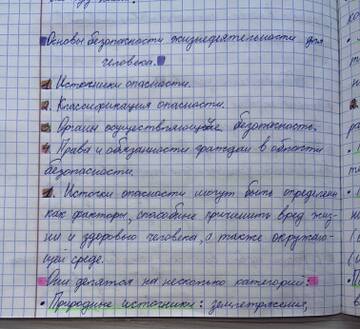 Основы безопасности жизнедеятельности для
человека.
1. Источники опасности.
2. Классификация опасности.
3. Органы осуществляющие безопасность.
4. Права и обязанности граждан в области
безопасности.
1. Источки опасности могут быть определены
как факторы, способные причинить вред жиз-
ни и здоровью человека, а также окружаю-
щей среде.
Они делятся на несколько категорий:
• Природные источники: землетрясения,